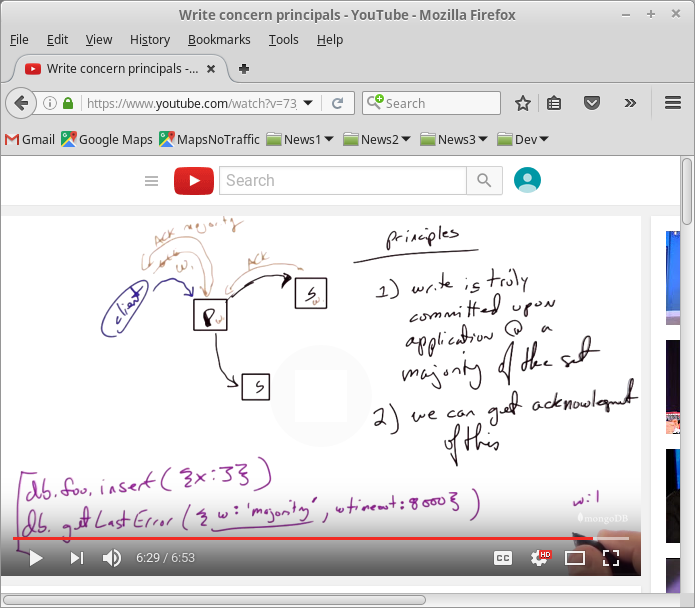 Write concern principals - YouTube - Mozilla Firefox
File Edit View History Bookmarks Tools Help
Write concern principals -...
https://www.youtube.com/watch?v=73
Search
Gmail Google Maps MapsNoTraffic News1 News2 News3 Dev
Search
ACK majority
w.
ACK
client
P w
S w.
S
principles
1) write is truly
committed upon
application @ a
majority of the set
2) we can get acknowlegment
of this
db.foo.insert({x:3})
db.getLastError({w:'majority', wtimeout:8000})
w:1
mongoDB
6:29 / 6:53
CC
HD